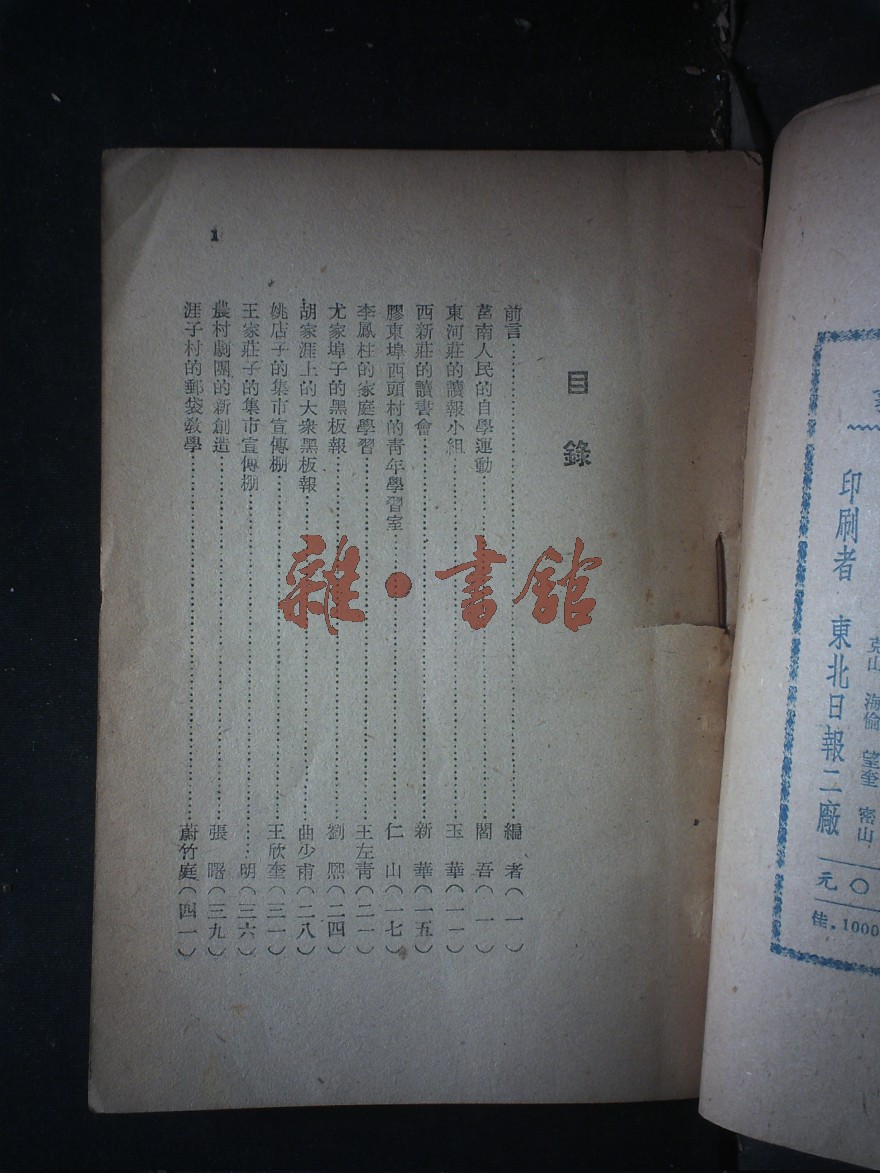 印刷者　東北日報二廠
克山　海倫　望奎　密山
元〇
佳．1000
目錄
前言……編者（一）
莒南人民的自學運動……閻吾（一）
東河莊的讀報小組……玉華（一一）
西新莊的讀書會……新華（一五）
膠東埠西頭村的青年學習室……仁山（一七）
李鳳柱的家庭學習……王左青（二一）
尤家埠子的黑板報……劉熙（二四）
胡家涯上的大衆黑板報……曲少甫（二八）
姚店子的集市宣傳棚……王欣奎（三一）
王家莊子的集市宣傳棚……明（三六）
農村劇團的新創造……張曙（三九）
涯子村的郵袋教學……蔚竹庭（四一）
1
雜·書館